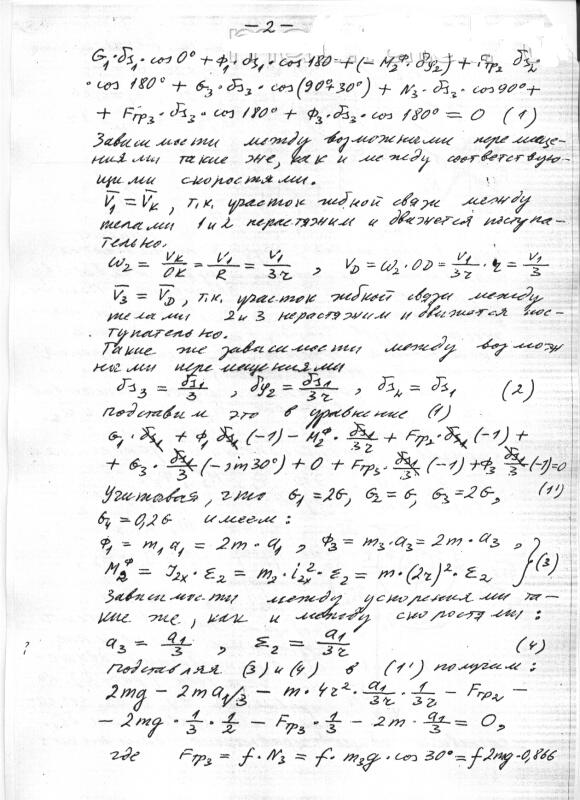 — 2 —
G₁·δs₁·cos0° + Φ₁·δs₁·cos180 + (−M₂ᶲ·δφ₂) + Fтр₂ δs₂·
·cos180° + G₃·δs₃·cos(90°+30°) + N₃·δs₃·cos90° +
+ Fтр₃·δs₃·cos180° + Φ₃·δs₃·cos180° = 0 (1)
Зависимости между возможными перемеще-
ниями такие же, как и между соответствую-
щими скоростями.
V̄₁ = V̄к, т.к. участок гибкой связи между
телами 1 и 2 нерастяжим и движется поступа-
тельно.
ω₂ = Vк/OK = V₁/R = V₁/3r , VD = ω₂·OD = V₁/3r · r = V₁/3
V̄₃ = V̄D, т.к. участок гибкой связи между
телами 2 и 3 нерастяжим и движется пос-
тупательно.
Такие же зависимости между возмож
ными перемещениями
δs₃ = δs₁/3 , δφ₂ = δs₁/3r , δs₄ = δs₁ (2)
подставим это в уравнение (1)
G₁·δs₁ + Φ₁ δs₁(−1) − M₂ᶲ · δs₁/3r + Fтр₂·δs₁(−1) +
+ G₃·δs₁/3(−sin30°) + 0 + Fтр₃·δs₁/3(−1) + Φ₃ δs₁/3(−1)=0
Учитывая, что G₁=2G, G₂=G, G₃=2G, (1')
G₄=0,2G имеем:
Φ₁ = m₁a₁ = 2m·a₁ , Φ₃ = m₃·a₃ = 2m·a₃ ,
M₂ᶲ = J₂ₓ·ε₂ = m₂·i₂ₓ²·ε₂ = m·(2r)²·ε₂ } (3)
Зависимости между ускорениями та-
кие же, как и между скоростями:
? a₃ = a₁/3 , ε₂ = a₁/3r (4)
подставляя (3) и (4) в (1') получим:
2mg − 2ma₁/3 − m·4r²·a₁/3r·1/3r − Fтр₂ −
− 2mg·1/3·1/2 − Fтр₃·1/3 − 2m·a₁/3 = 0,
где Fтр₃ = f·N₃ = f·m₃g·cos30° = f2mg·0,866